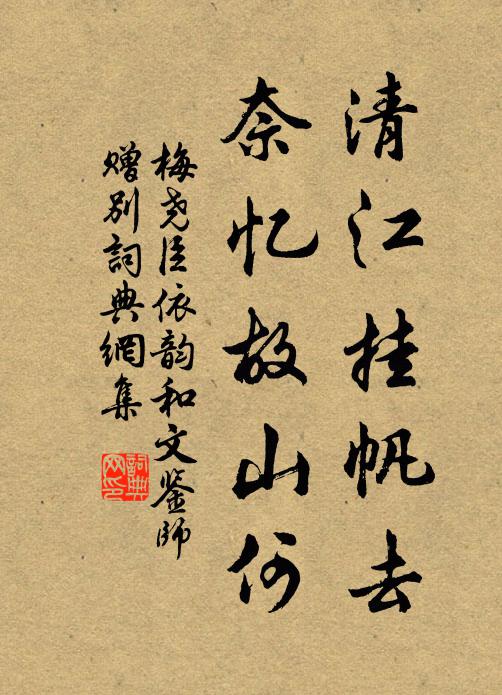 清江挂帆去
奈忆故山何
梅尧臣依韵和文鉴師
赠别詞典網集
詞典
网印